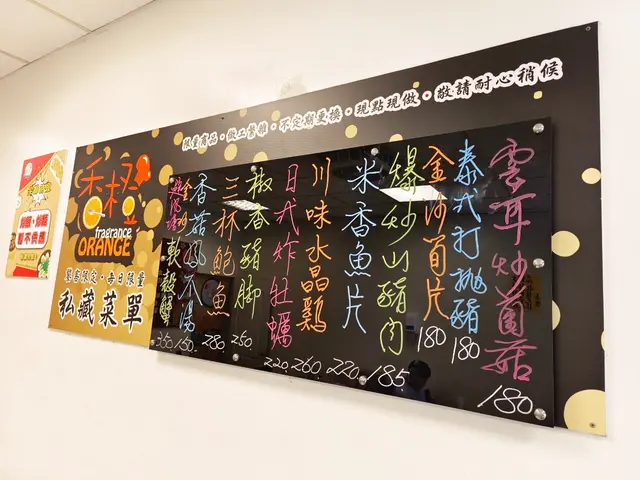 限量商品·做工繁瑣·不定期更換·現點現做·敬請耐心稍候
香橙
fragrance
ORANGE
饕客限定·每日限量
私藏菜單
雲耳炒菌菇 180
泰式打拋豬 180
金沙筍片 180
爆炒山豬肉 185
米香魚片 220
川味水晶雞 260
日式炸牡蠣 220
椒香豬腳 250
三杯鮑魚 280
香菇風爪湯 150
軟殼蟹 350
暫不供應